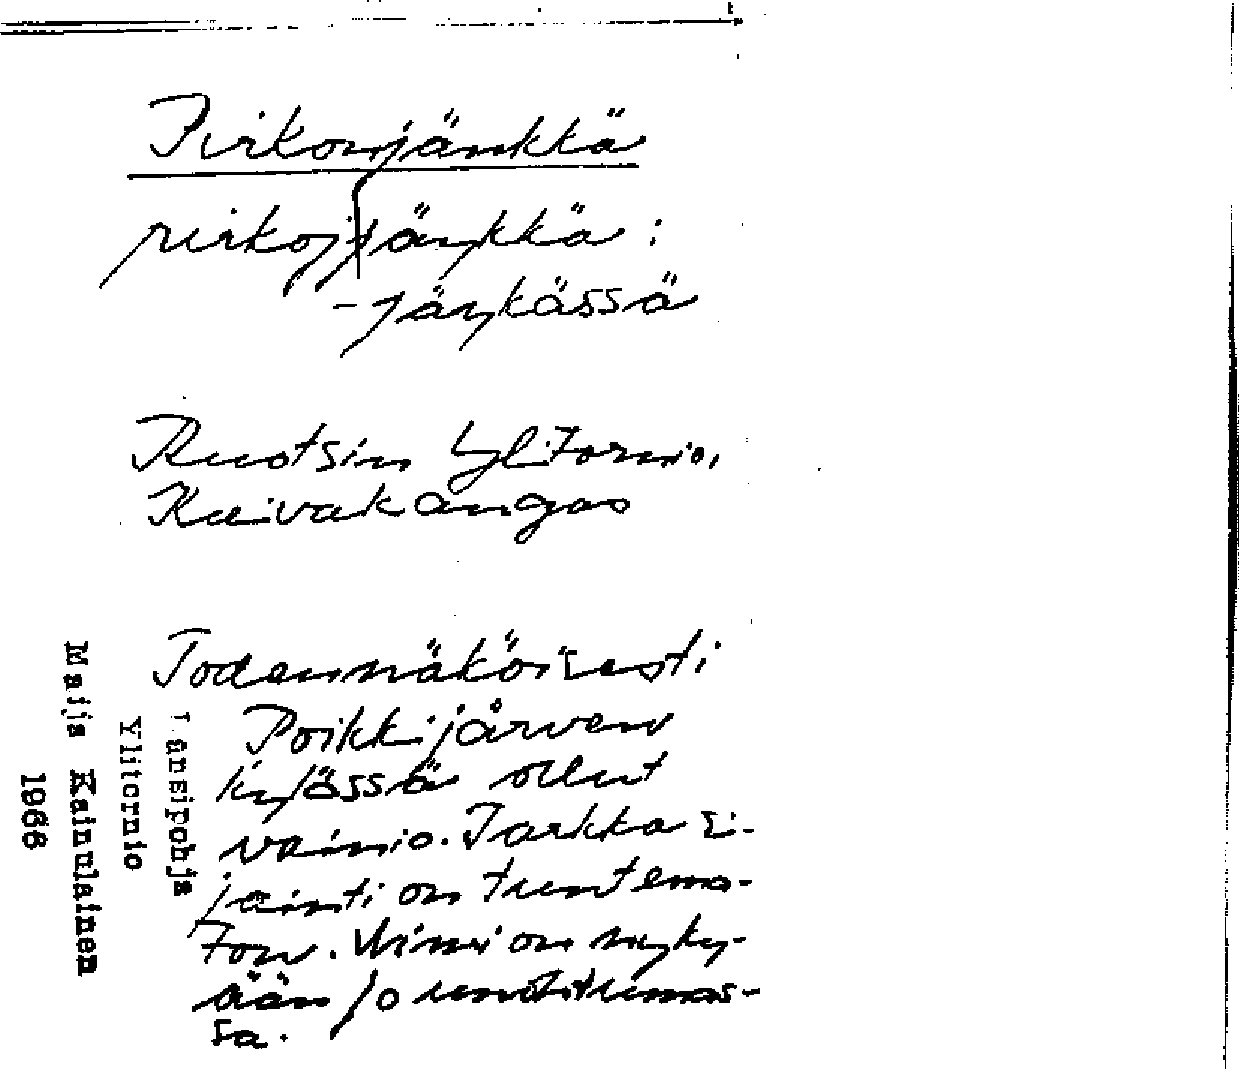 Pirkonjänkkä
pirkojjäŋkkä :
- jäŋkässä
Ruotsin Ylitornio,
Kuivakangas
Todennäköisesti
Poikkijärven
kylässä ollut
vainio. Tarkka si-
jainti on tuntema-
ton. Nimi on nyky-
ään jo unohtumas-
sa.
Länsipohja
Ylitornio
Maija Kainulainen
1966